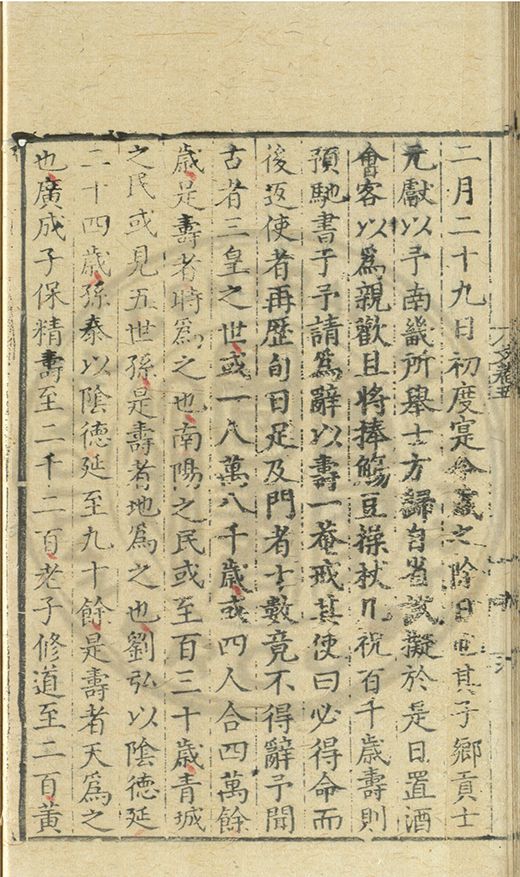 二月二十九日初度寔今歲之除日也其子鄉貢士
元獻以予南畿所舉士方歸自省試擬於是日置酒
會客以爲親歡且將捧觴豆操杖几祝百千歲壽則
預馳書于予請爲辭以壽一菴戒其使曰必得命而
後返使者再歷旬日足及門者士數竟不得辭予聞
古者三皇之世或一八萬八千歲或四人合四萬餘
歲是壽者時爲之也南陽之民或至百三十歲青城
之民或見五世孫是壽者地爲之也劉弘以陰德延
二十四歲孫泰以陰德延至九十餘是壽者天爲之
也廣成子保精壽至二千二百老子修道至二百黃